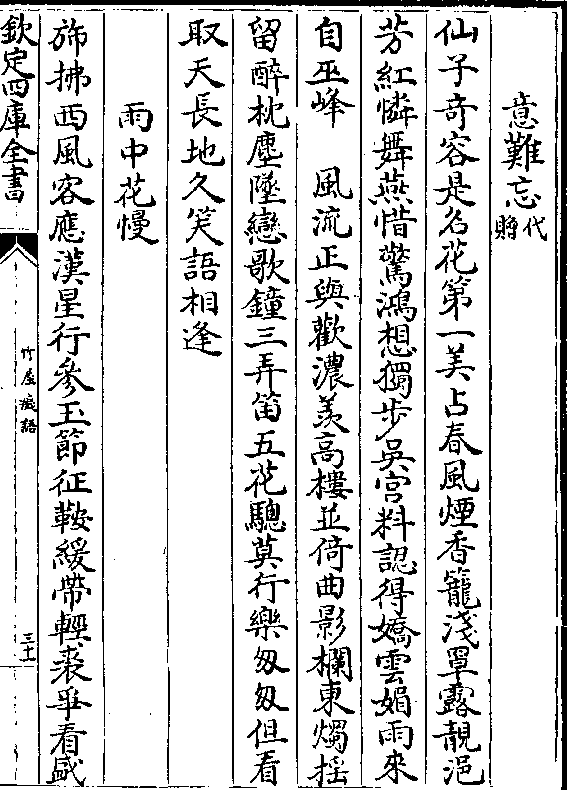 意難忘代贈
仙子奇容是名花第一美占春風煙香籠淺罩露靚浥
芳紅憐舞燕惜驚鴻想獨步吳宮料認得嬌雲媚雨來
自巫峰　風流正與歡濃羨高樓並倚曲影欄東燭搖
留醉枕塵墜戀歌鐘三弄笛五花驄莫行樂匆匆但看
取天長地久笑語相逢
雨中花慢
旆拂西風客應漢星行參玉節征鞍緩帶輕裘爭看盛
欽定四庫全書
竹屋癡語
三十